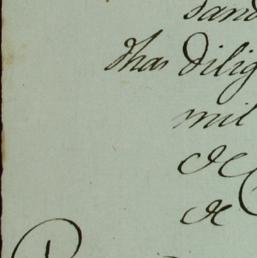 sand
dhas dilig
mil
de
de